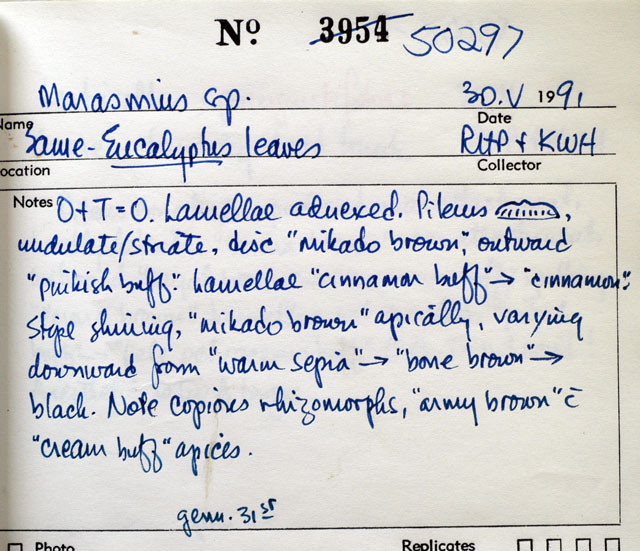 Nº 3954 50297
Marasmius sp. 30.V 1991
Name Date
Same - Eucalyptus leaves RHP & KWH
ocation Collector
Notes O+T=O. Lamellae adnexed. Pileus ,
undulate/striate, disc "mikado brown," outward
"pinkish buff." Lamellae "cinnamon buff" → "cinnamon".
Stipe shining, "mikado brown" apically, varying
downward from "warm sepia" → "bone brown" →
black. Note copious rhizomorphs, "army brown" c̄
"cream buff" apices.
germ. 31st
Photo Replicates